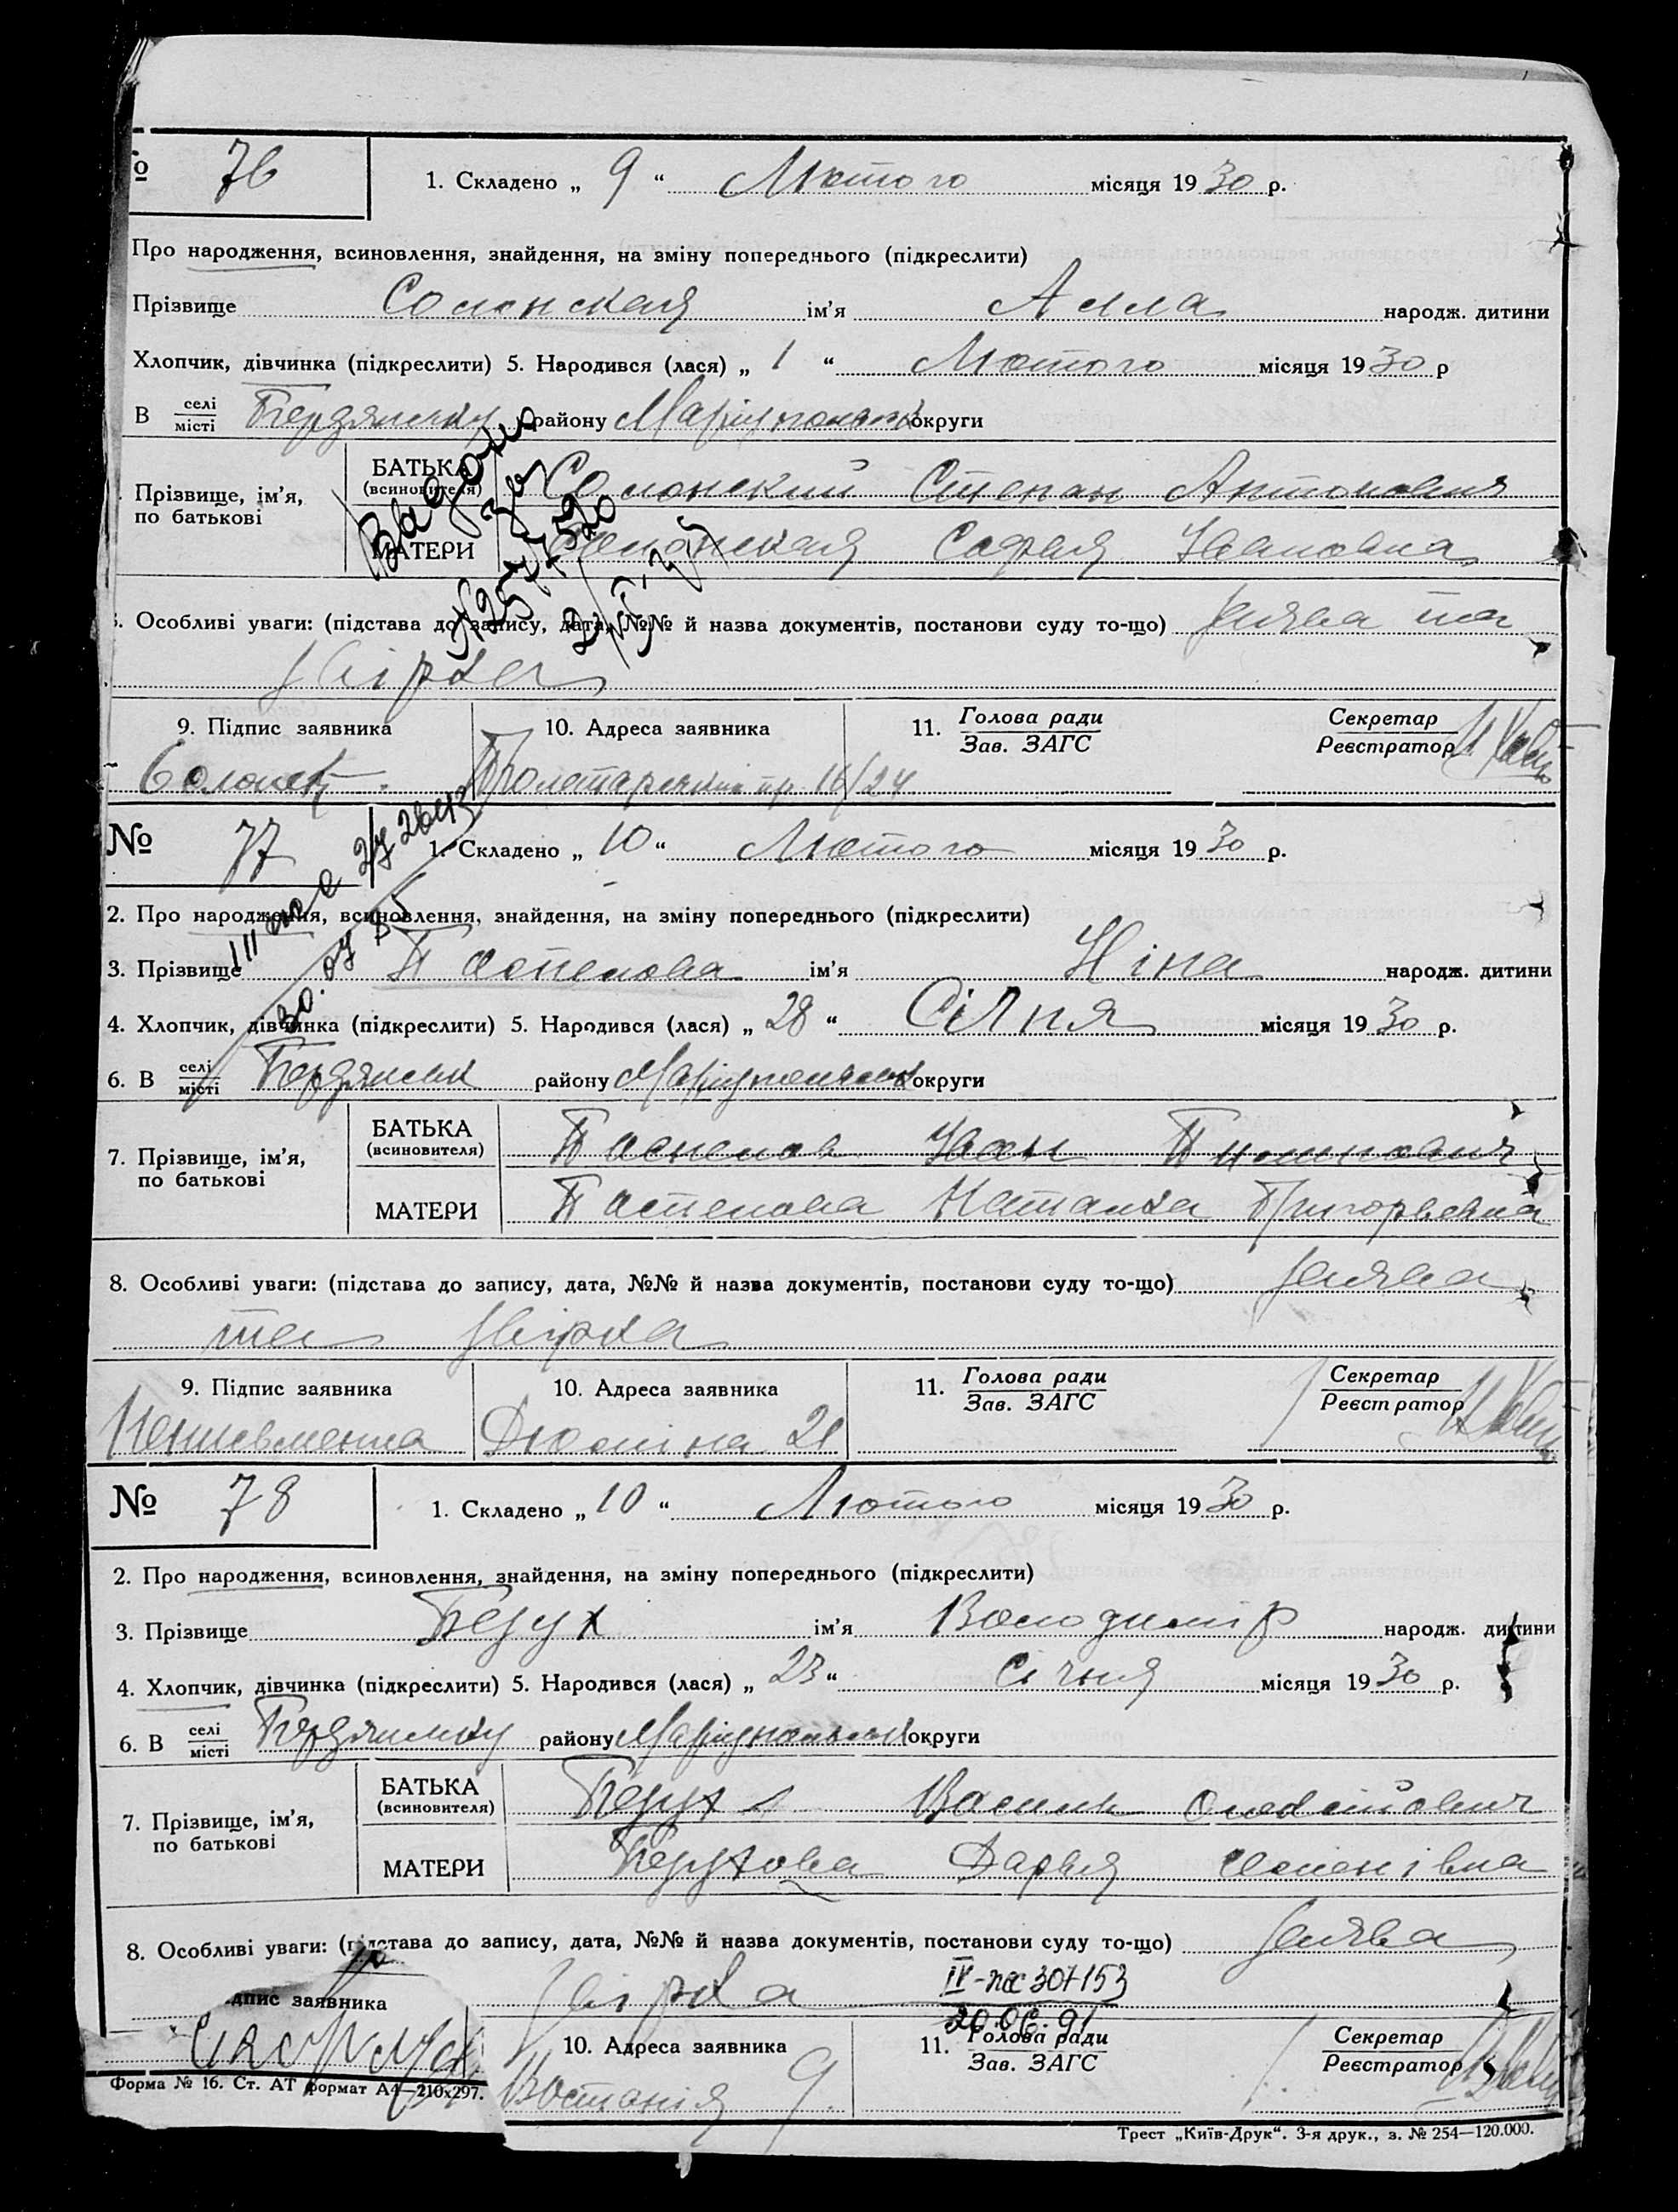 № 76
1. Складено „ 9 “ Лютого місяця 19 30 р.
Про народження, всиновлення, знайдення, на зміну попереднього (підкреслити)
Прізвище Солонская ім’я Алла народж. дитини
Хлопчик, дівчинка (підкреслити) 5. Народився (лася) „ 1 “ Лютого місяця 19 30 р
В селі місті Бердянську району округи
Прізвище, ім’я, по батькові
БАТЬКА (всиновителя) Солонский Степан Антонович
МАТЕРИ Солонская Софья Ивановна
Видано
8. Особливі уваги: (підстава до запису, дата, №№ й назва документів, постанови суду то-що) Заява та
звірка
9. Підпис заявника
10. Адреса заявника
11. Голова ради
Зав. ЗАГС
Секретар
Реєстратор
Пролетарский пр. 16/24
№ 77
1. Складено „ 10 “ Лютого місяця 19 30 р.
2. Про народження, всиновлення, знайдення, на зміну попереднього (підкреслити)
3. Прізвище Поспелова ім’я Ніна народж. дитини
4. Хлопчик, дівчинка (підкреслити) 5. Народився (лася) „ 28 “ Січня місяця 19 30 р.
6. В селі місті Бердянськ району округи
7. Прізвище, ім’я, по батькові
БАТЬКА (всиновителя) Поспелов Иван
МАТЕРИ Поспелова Наталка Григорьевна
8. Особливі уваги: (підстава до запису, дата, №№ й назва документів, постанови суду то-що) Заява
та звірка
9. Підпис заявника
10. Адреса заявника
11. Голова ради
Зав. ЗАГС
Секретар
Реєстратор
Дюміна 21
№ 78
1. Складено „ 10 “ Лютого місяця 19 30 р.
2. Про народження, всиновлення, знайдення, на зміну попереднього (підкреслити)
3. Прізвище ім’я Володимір народж. дитини
4. Хлопчик, дівчинка (підкреслити) 5. Народився (лася) „ 23 “ Січня місяця 19 30 р.
6. В селі місті Бердянську району округи
7. Прізвище, ім’я, по батькові
БАТЬКА (всиновителя) Василь
МАТЕРИ Дарья
8. Особливі уваги: (підстава до запису, дата, №№ й назва документів, постанови суду то-що) Заява
звірка
20.06.91
підпис заявника
10. Адреса заявника
11. Голова ради
Зав. ЗАГС
Секретар
Реєстратор
Востанія 9
Форма № 16. Ст. АТ формат А4—210х297.
Трест „Київ-Друк“. 3-я друк., з. № 254—120.000.